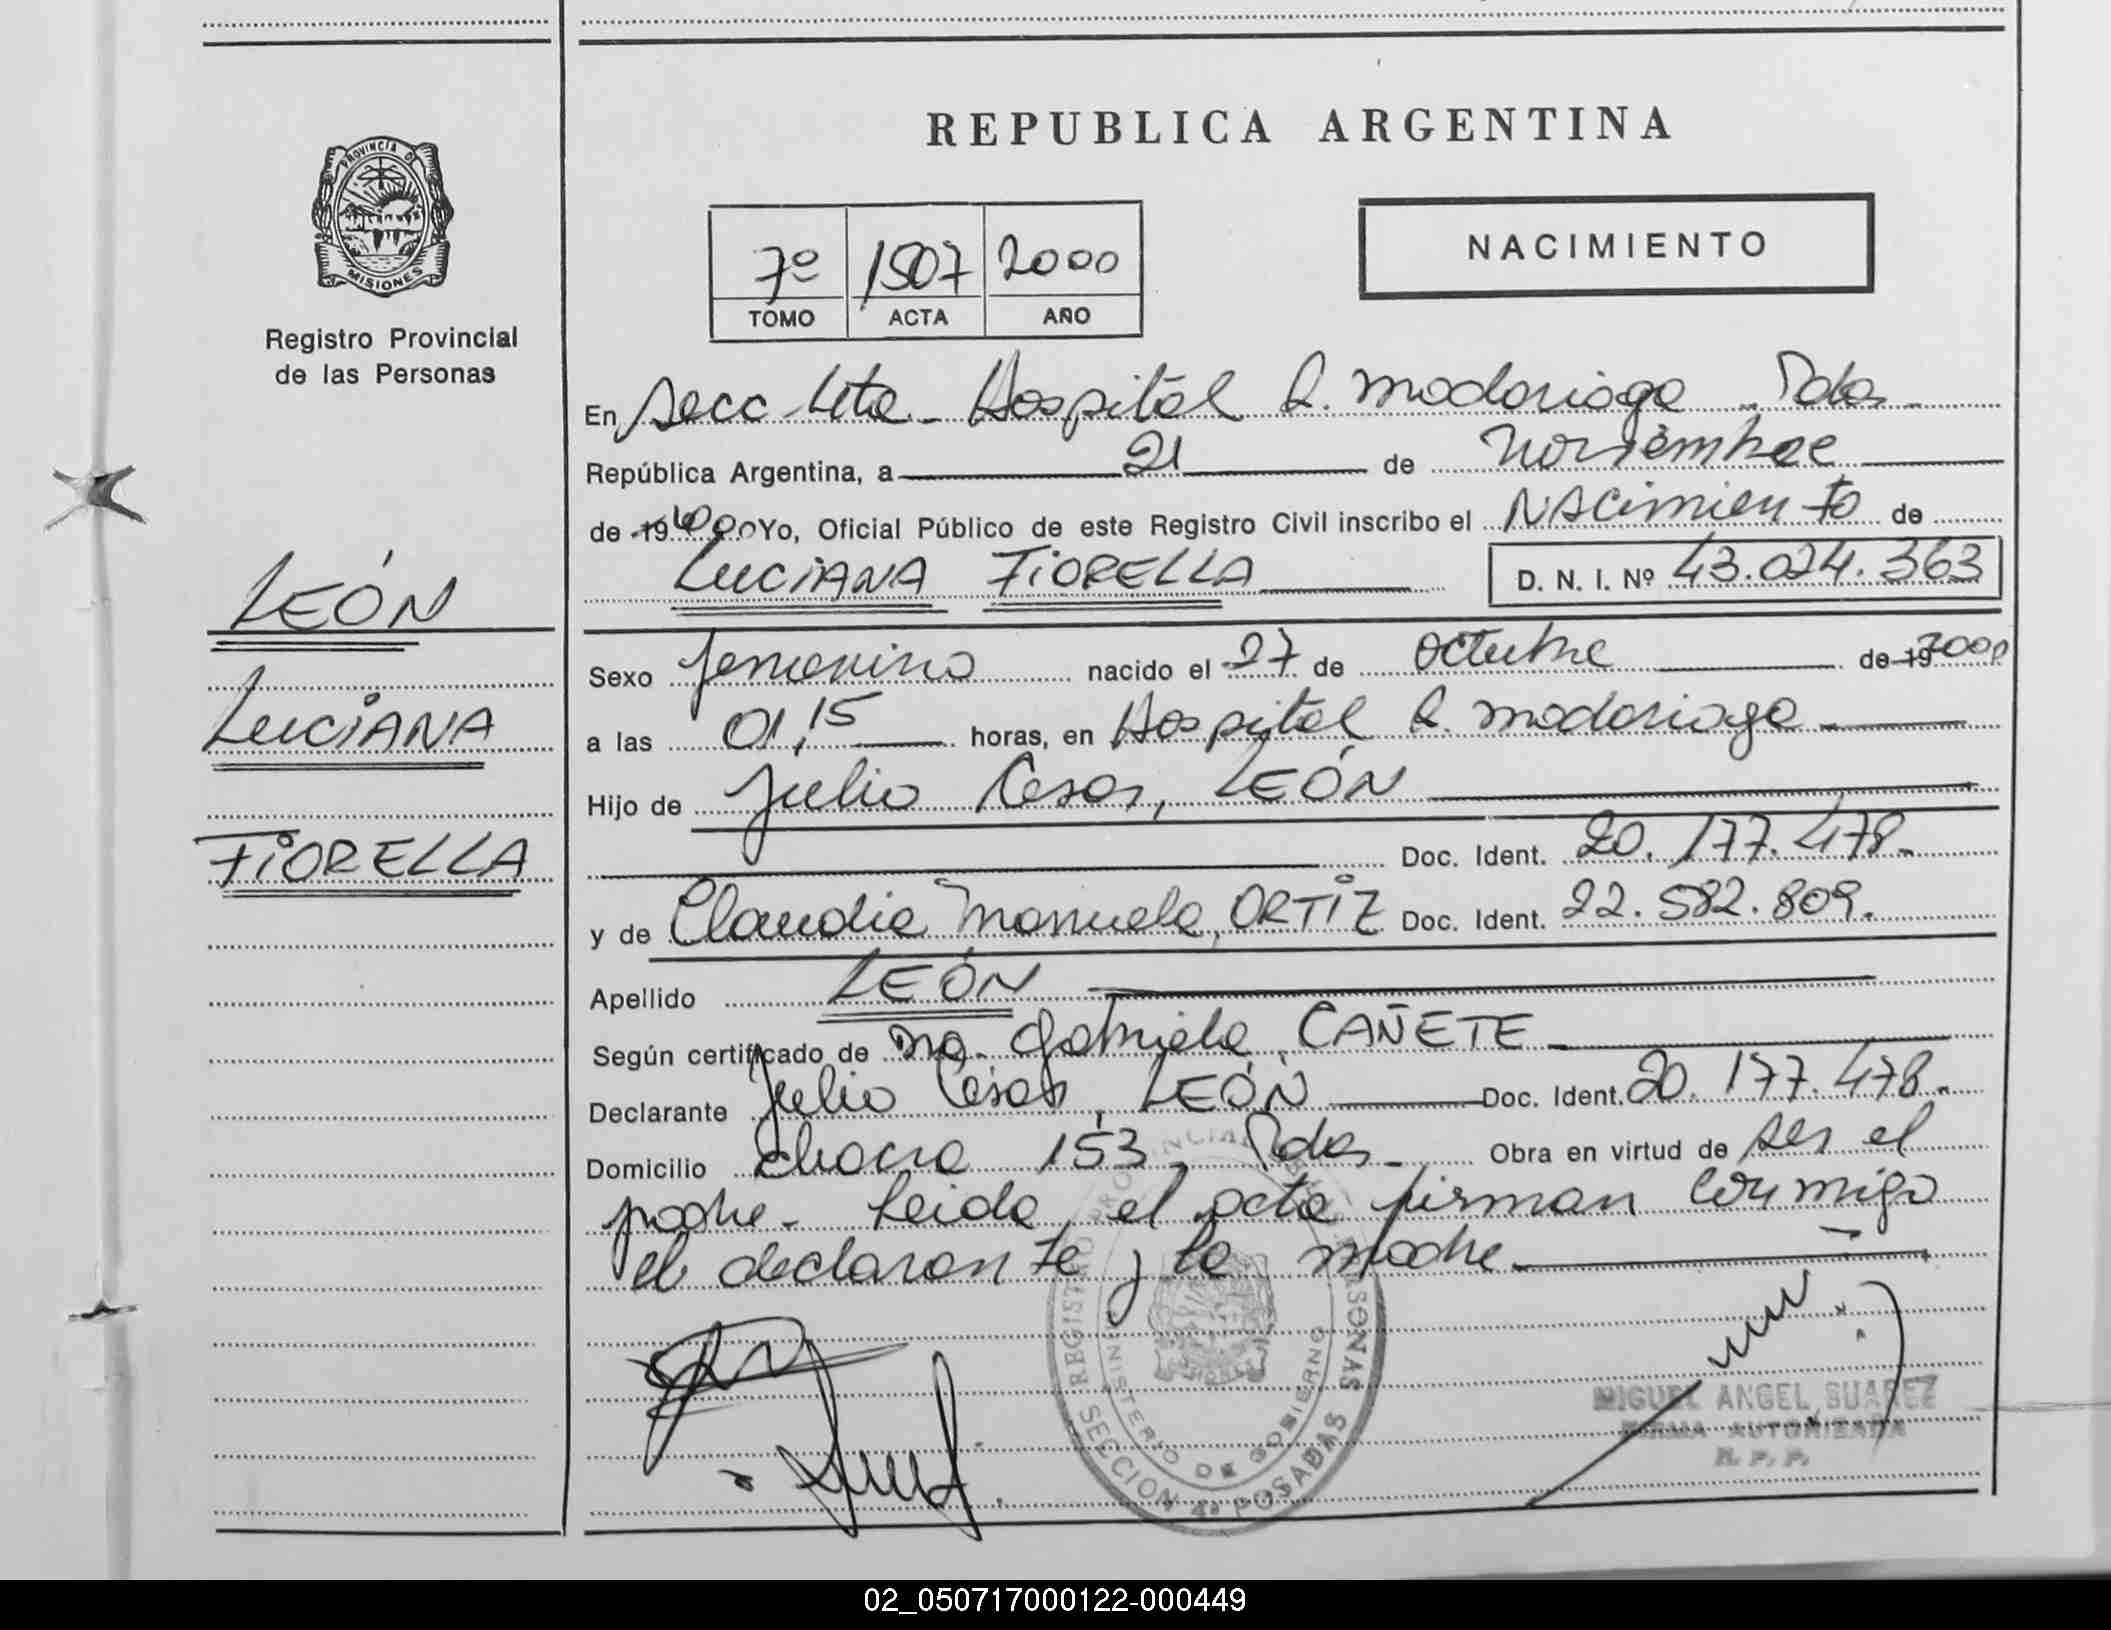 PROVINCIA DE
MISIONES
Registro Provincial
de las Personas
LEÓN
LUCIANA
FIORELLA
REPUBLICA ARGENTINA
7º 1507 2000
TOMO ACTA AÑO
NACIMIENTO
En Secc 4ta - Hospital R. Madariaga - Pdas -
República Argentina, a 21 de Noviembre
de 19 2000 Yo, Oficial Público de este Registro Civil inscribo el NACimiento de
LUCIANA FIORELLA D. N. I. Nº 43.024.363
Sexo femenino nacido el 27 de octubre de 19 2000
a las 01,15 horas, en Hospital R. Madariaga
Hijo de Julio Cesar, LEÓN
Doc. Ident. 20.177.478.
y de Claudia Manuela, ORTIZ Doc. Ident. 22.582.809.
Apellido LEÓN
Según certificado de Ma. Gabriela, CAÑETE
Declarante Julio Cesar, LEÓN Doc. Ident. 20.177.478.
Domicilio chacra 153, Pdas - Obra en virtud de ser el
padre - Leida el acta firman conmigo
el declarante y la madre
REGISTRO PROVINCIAL DE LAS PERSONAS
MINISTERIO DE GOBIERNO
SECCION 4a POSADAS
MIGUEL ANGEL SUAREZ
FIRMA AUTORIZADA
R. P. P.
02_050717000122-000449